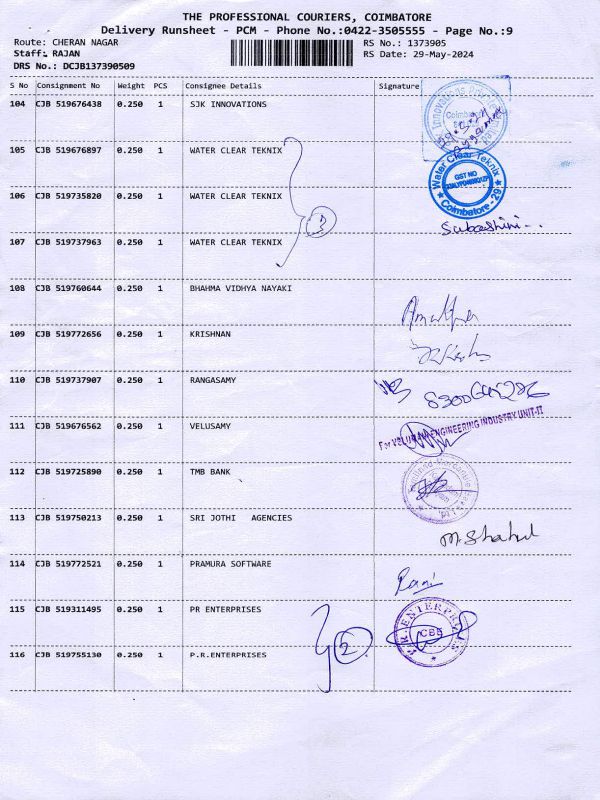 THE PROFESSIONAL COURIERS, COIMBATORE
Delivery Runsheet - PCM - Phone No.:0422-3505555 - Page No.:9
Route: CHERAN NAGAR RS No.: 1373905
Staff: RAJAN RS Date: 29-May-2024
DRS No.: DCJB137390509
S No Consignment No Weight PCS Consignee Details Signature
104 CJB 519676438 0.250 1 SJK INNOVATIONS
Coimbatore
105 CJB 519676897 0.250 1 WATER CLEAR TEKNIX
Water Clear Teknix
GST NO
Coimbatore - 29
106 CJB 519735820 0.250 1 WATER CLEAR TEKNIX
3
Subashini
107 CJB 519737963 0.250 1 WATER CLEAR TEKNIX
108 CJB 519760644 0.250 1 BHAHMA VIDHYA NAYAKI
109 CJB 519772656 0.250 1 KRISHNAN
110 CJB 519737907 0.250 1 RANGASAMY
111 CJB 519676562 0.250 1 VELUSAMY
For ENGINEERING INDUSTRY UNIT-II
112 CJB 519725890 0.250 1 TMB BANK
113 CJB 519750213 0.250 1 SRI JOTHI AGENCIES
M. Shahul
114 CJB 519772521 0.250 1 PRAMURA SOFTWARE
115 CJB 519311495 0.250 1 PR ENTERPRISES
P.R. ENTERPRISES
CBE
2
116 CJB 519755130 0.250 1 P.R.ENTERPRISES